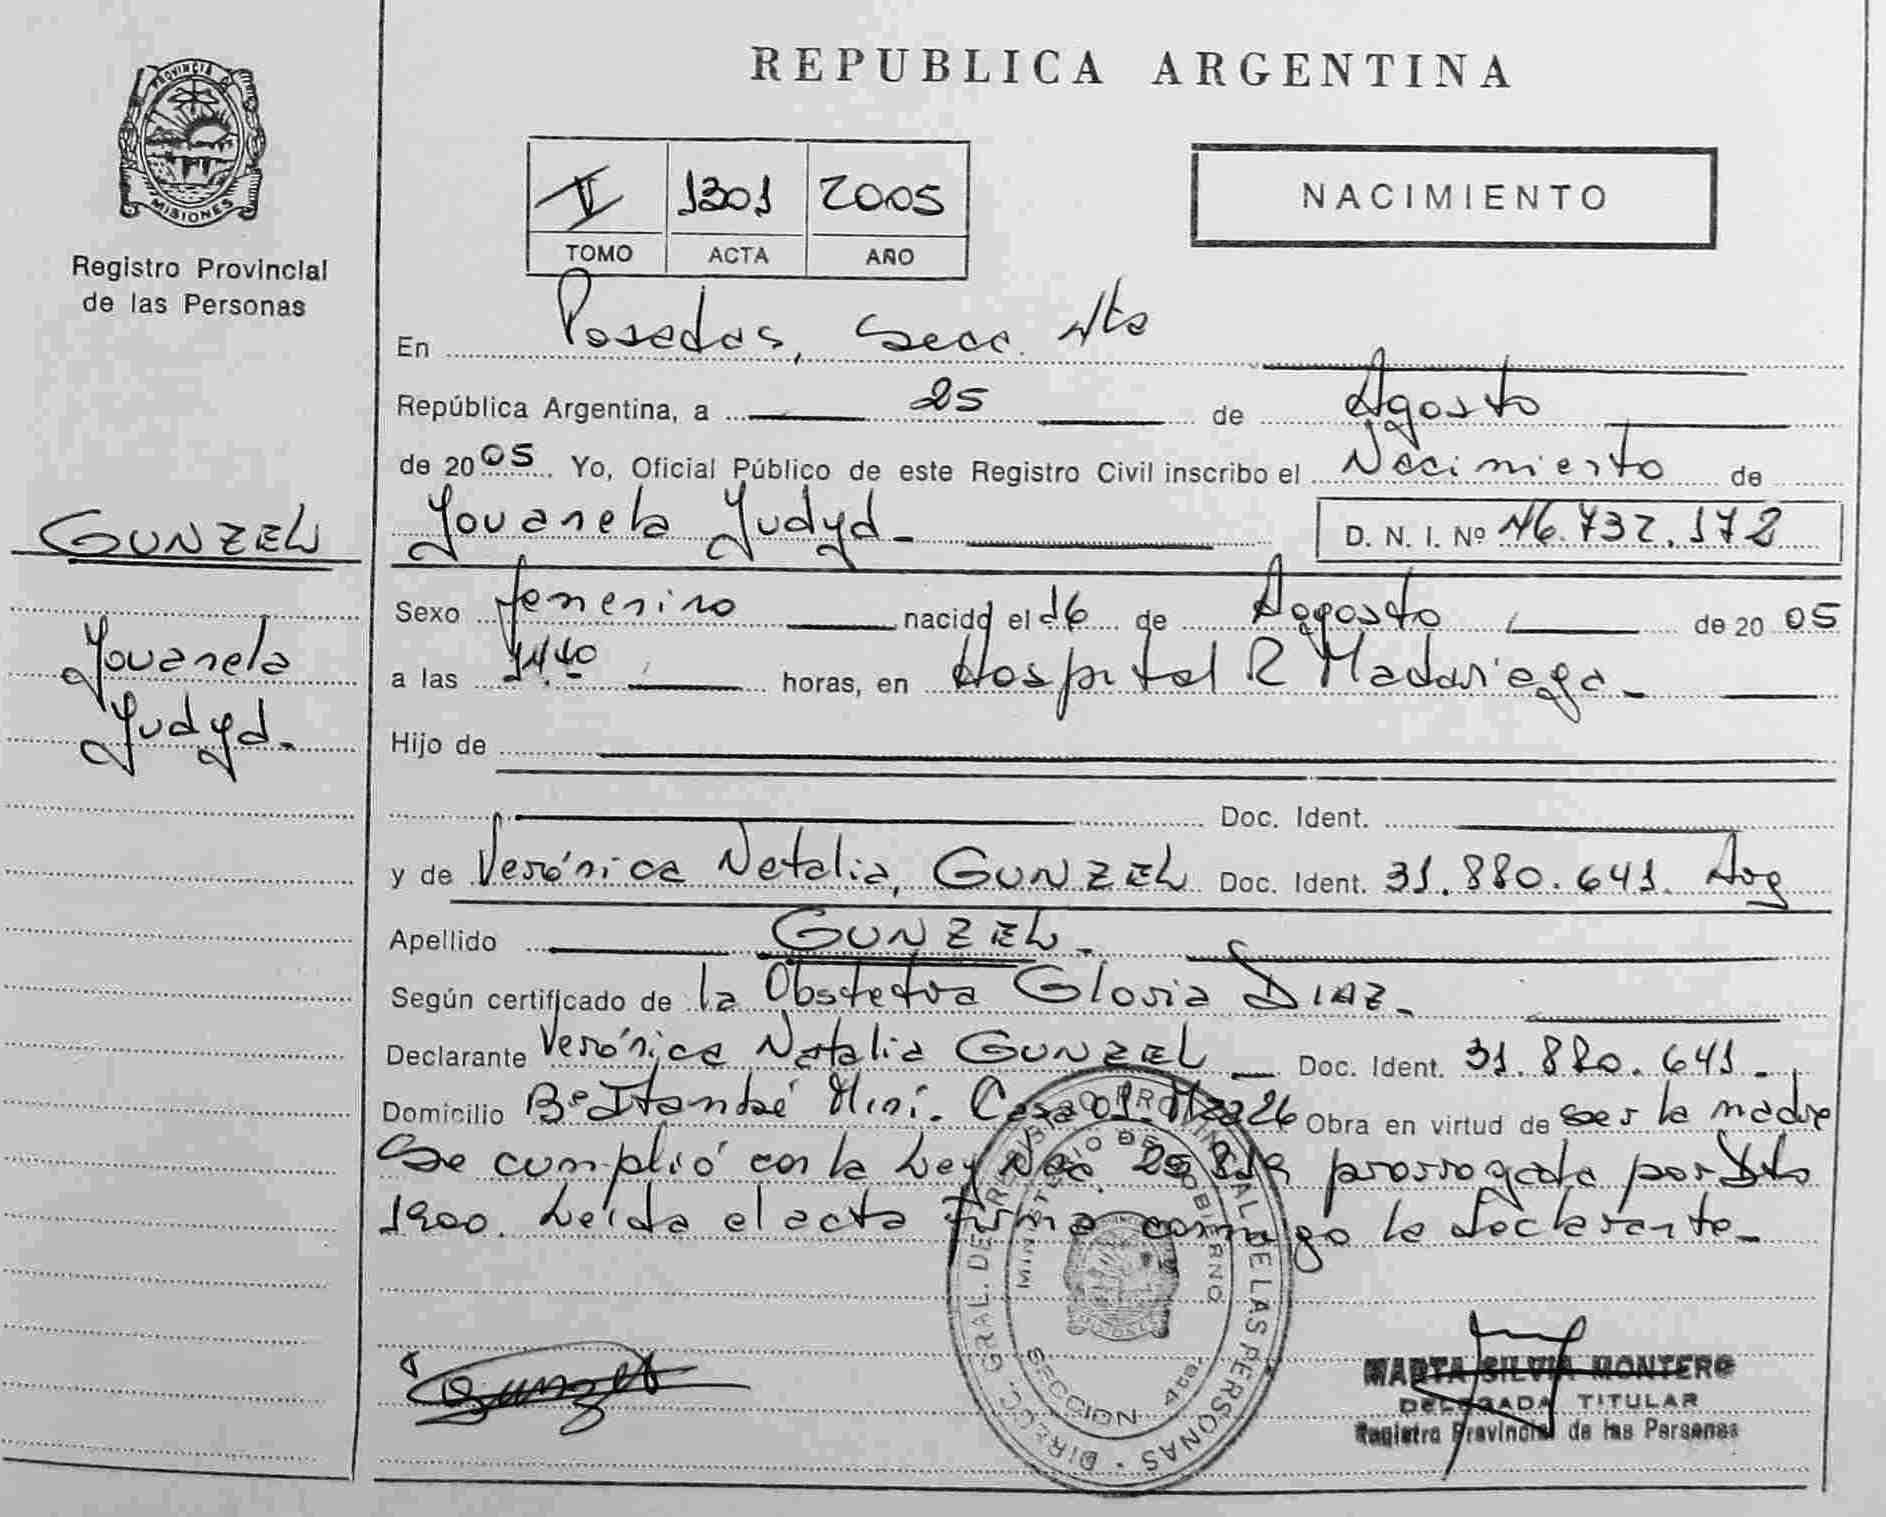 REPUBLICA ARGENTINA
PROVINCIA D
MISIONES
Registro Provincial
de las Personas
V 1301 2005
TOMO ACTA AÑO
NACIMIENTO
En Posadas, Secc. 4ta
República Argentina, a 25 de Agosto
de 2005. Yo, Oficial Público de este Registro Civil inscribo el Nacimiento de
Jovanela Judyd. D. N. I. Nº 46.732.172
GUNZEL
Jovanela
Judyd.
Sexo femenino nacido el 16 de Agosto de 2005
a las 14.40 horas, en Hospital R Madariaga.
Hijo de
Doc. Ident.
y de Verónica Natalia, GUNZEL Doc. Ident. 31.880.641. Arg
Apellido GUNZEL.
Según certificado de la Obstetra Gloria DIAZ.
Declarante Verónica Natalia GUNZEL Doc. Ident. 31.880.641.
Domicilio Bº Itambé Miní. Casa 01 Mza 26 Obra en virtud de ser la madre
Se cumplió con la Ley Nac. 25.819 prorrogada por Dto
1900. Leída el acta firma conmigo la declarante.
DIRECC. GRAL. DE REGISTRO PROVINCIAL DE LAS PERSONAS
MINISTERIO DE GOBIERNO
SECCION 4ta.
Gunzel
MARTA SILVIA MONTERO
DELEGADA TITULAR
Registro Provincial de las Personas